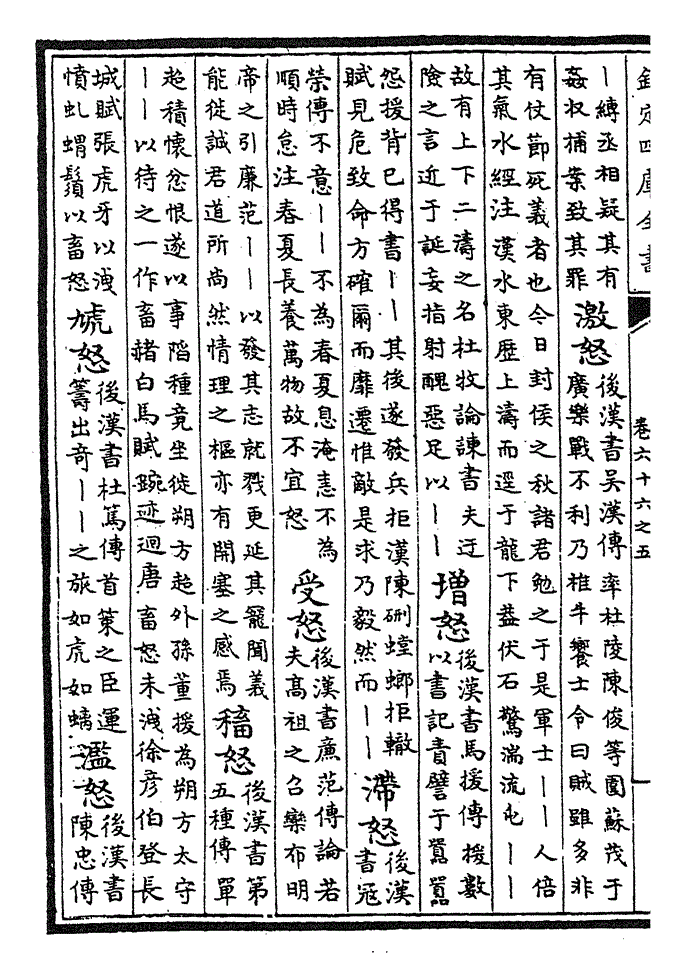 欽定四庫全書 卷六十六之五 一
丨縛丞相疑其有
姦収捕案致其罪
激怒
後漢書吳漢傳率杜陵陳俊等圍蘇茂于
廣樂戰不利乃椎牛饗士令曰賊雖多非
有仗節死義者也今日封侯之秋諸君勉之于是軍士丨丨人倍
其氣水經注漢水東歷上濤而逕于龍下葢伏石驚湍流屯丨丨
故有上下二濤之名杜牧論諫書夫迂
險之言近于誕妄指射醜惡足以丨丨
増怒
後漢書馬援傳援數
以書記責譬于囂囂
怨援背已得書丨丨其後遂發兵拒漢陳琍螳螂拒轍
賦見危致命方確爾而靡遷惟敵是求乃毅然而丨丨
滯怒
後漢
書冦
榮傳不意丨丨不為春夏息淹恚不為
順時怠注春夏長養萬物故不宜怒
受怒
後漢書廉范傳論若
夫髙祖之召欒布明
帝之引廉范丨丨以發其志就戮更延其寵聞義
能徙誠君道所尚然情理之樞亦有開塞之感焉
稸怒
後漢書第
五種傳單
超積懷忿恨遂以事陷種竟坐徙朔方超外孫董援為朔方太守
丨丨以待之一作畜赭白馬賦踠迹迴唐畜怒未洩徐彦伯登長
城賦張虎牙以洩
憤虬蝟鬚以畜怒
虓怒
後漢書杜篤傳首策之臣運
籌出奇丨丨之旅如虎如螭
濫怒
後漢書
陳忠傳